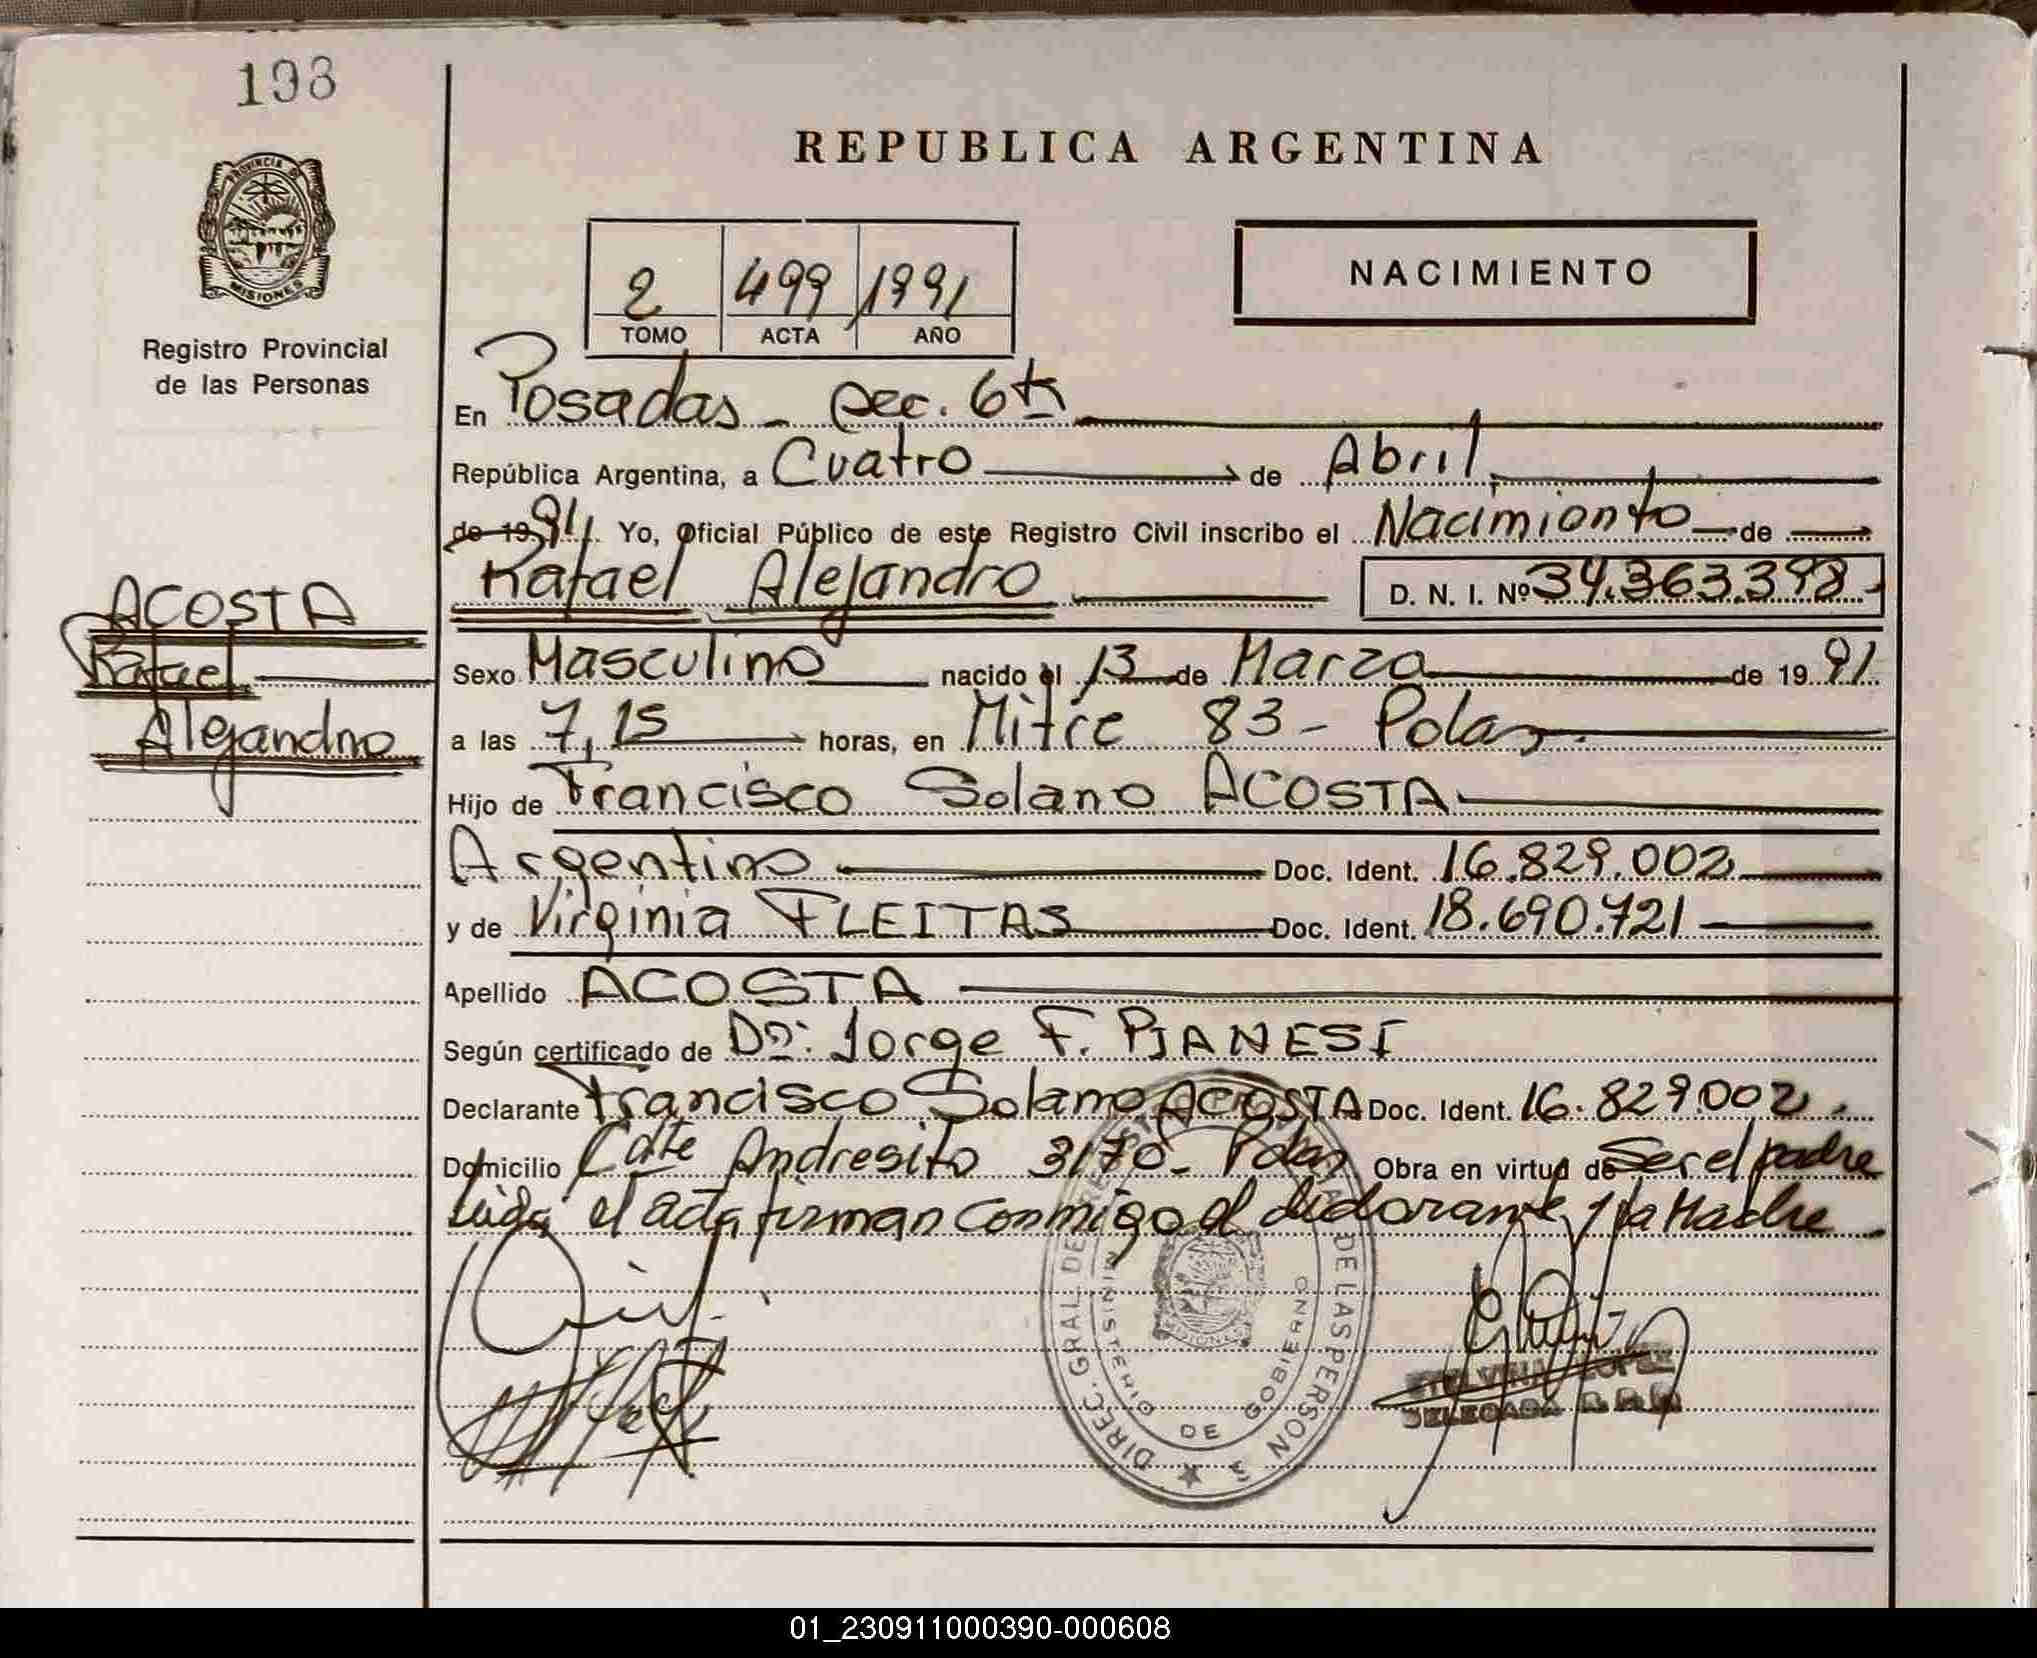 198
PROVINCIA DE
MISIONES
Registro Provincial
de las Personas
REPUBLICA ARGENTINA
2 499 1991
TOMO ACTA AÑO
NACIMIENTO
En Posadas - sec. 6ta
República Argentina, a Cuatro de Abril
de 1991. Yo, Oficial Público de este Registro Civil inscribo el Nacimiento de
Rafael Alejandro
D. N. I. Nº 34.363.398
ACOSTA
Rafael
Alejandro
Sexo Masculino nacido el 13 de Marzo de 1991
a las 7,15 horas, en Mitre 83 - Pdas.
Hijo de Francisco Solano ACOSTA
Argentino Doc. Ident. 16.829.002
y de Virginia FLEITAS Doc. Ident. 18.690.721
Apellido ACOSTA
Según certificado de Dr: Jorge F. PIANESI
Declarante Francisco Solano ACOSTA Doc. Ident. 16.829.002.
Domicilio Calle Andresito 3170 - Pdas Obra en virtud de Ser el padre
Leida el acta firman conmigo el declarante y la Madre.
DIREC. GRAL. DE DE LAS PERSONAS
MINISTERIO DE GOBIERNO
MISIONES
ETELVINA LOPEZ
DELEGADA
01_230911000390-000608